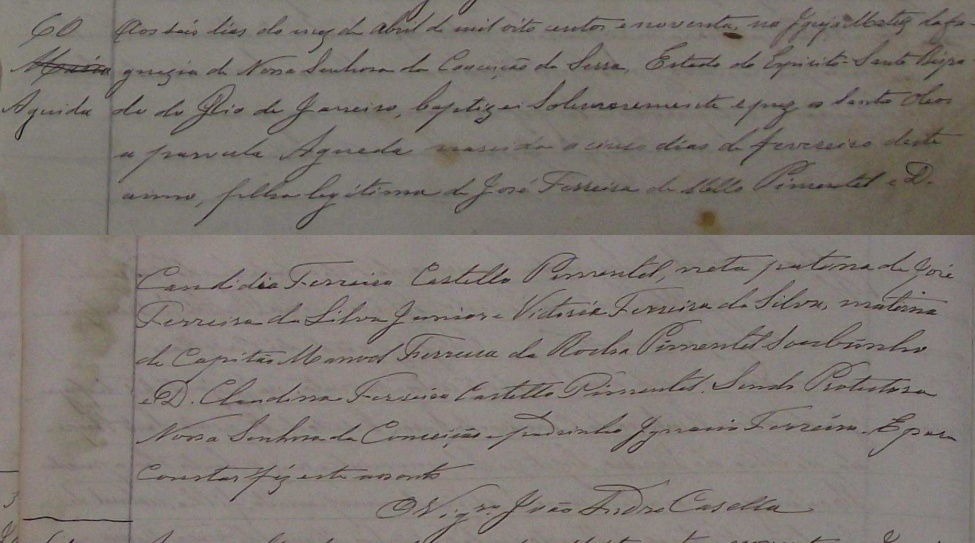 60 Aos seis dias do mez de Abril de mil oito centos e noventa, na Igreja Matriz da fre
Maria guezia de Nossa Senhora da Conceição da Serra, Estado do Espirito-Santo Bispa
Aguida do do Rio de Janeiro, baptizei Solemnemente e puz os Santos Oleos
a parvula Agueda nascida a cinco dias de fevereiro deste
anno, filha legitima de José Ferreira de Mello Pimentel e D.
Candidia Ferreira Castello Pimentel, neta paterna de José
Ferreira da Silva Junior e Victoria Ferreira da Silva, materna
de Capitão Manoel Ferreira da Rocha Pimentel
e D. Claudina Ferreira Castello Pimentel. Sendo Protectora
Nossa Senhora da Conceição e padrinho Ignacio Ferreira. E para
constar fiz este assento
O Vigro. João Andre Casella